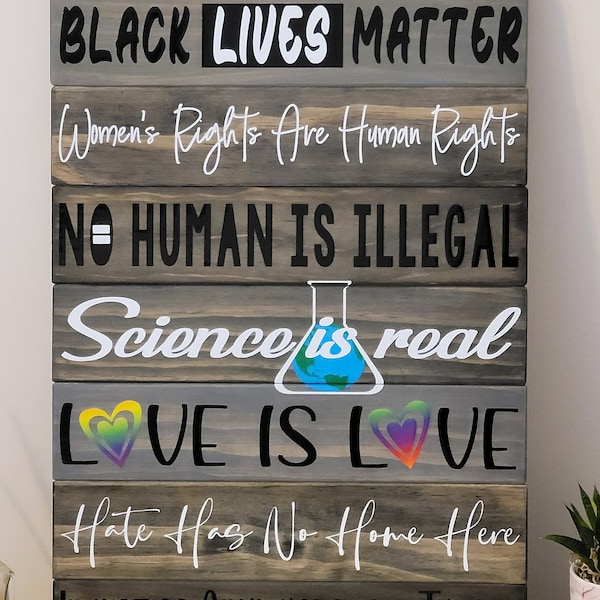 BLACK LIVES MATTER
Women's Rights Are Human Rights
NO HUMAN IS ILLEGAL
Science is real
LOVE IS LOVE
Hate Has No Home Here